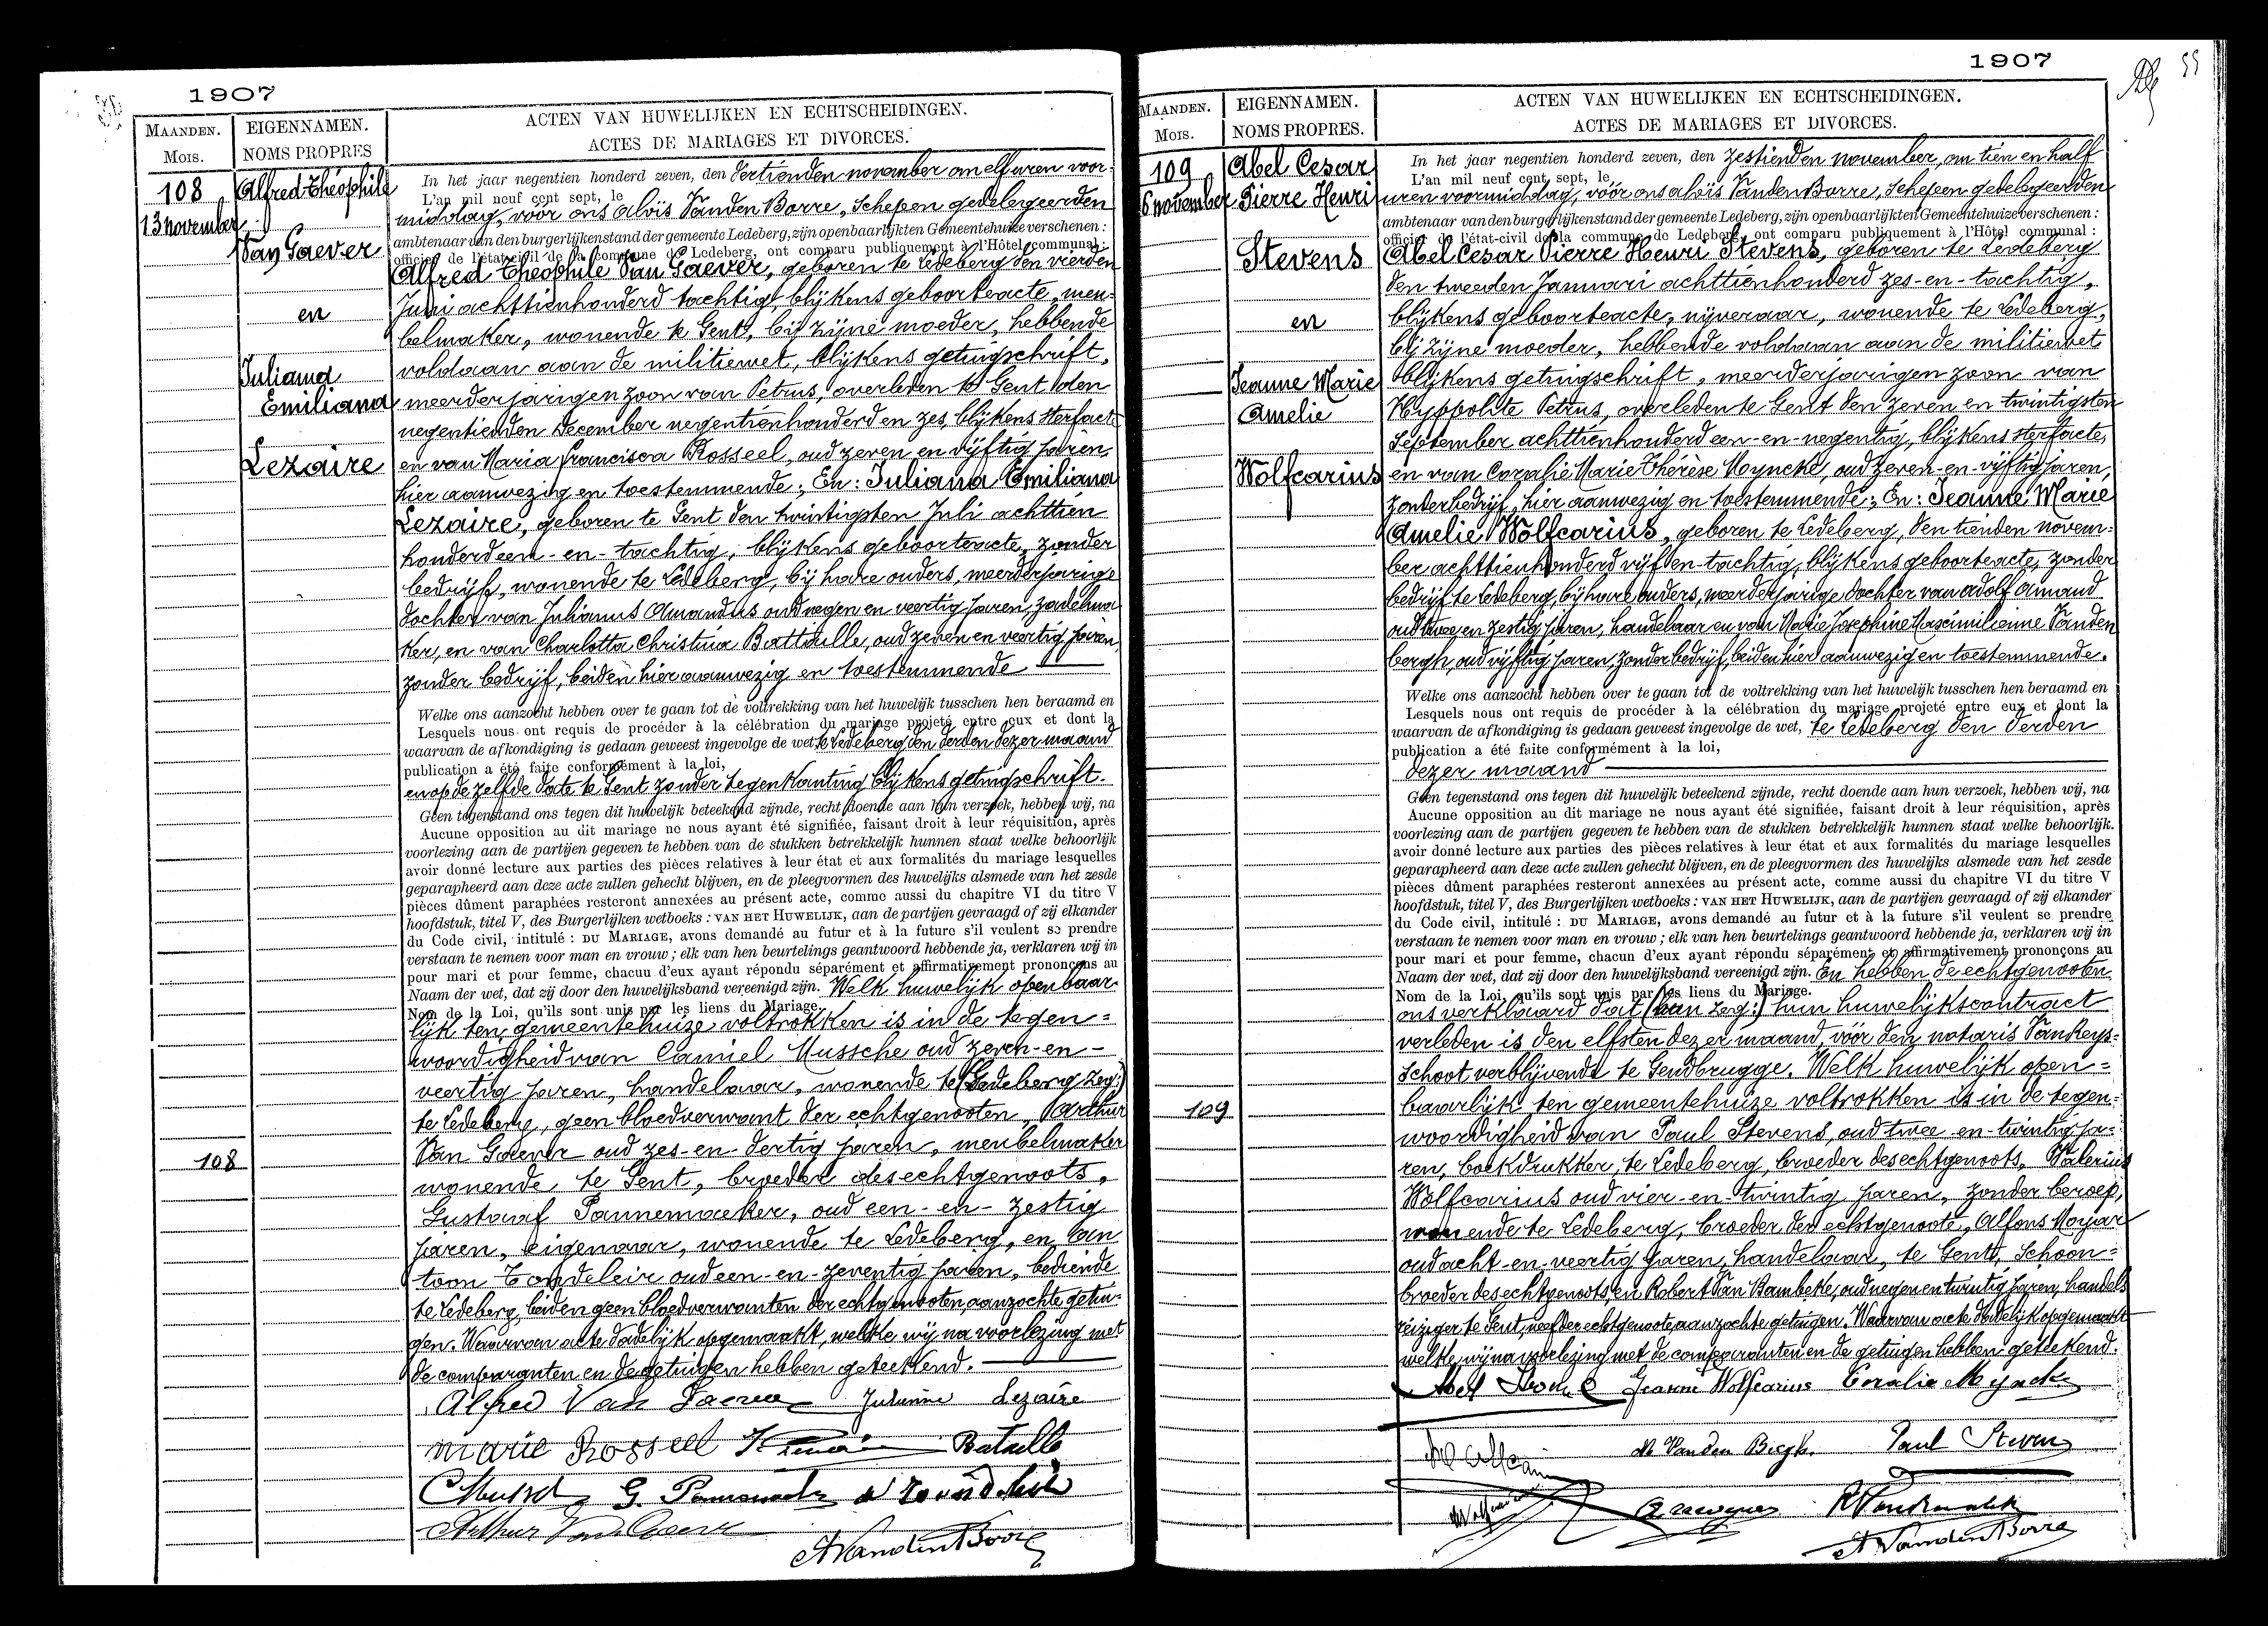 1907
MAANDEN.
Mois.
EIGENNAMEN.
NOMS PROPRES
ACTEN VAN HUWELIJKEN EN ECHTSCHEIDINGEN.
ACTES DE MARIAGES ET DIVORCES.
108
13 november
Alfred Théophile
Van Gaever
en
Juliana
Emiliana
Lezaire
108
In het jaar negentien honderd zeven, den dertienden november om elf uren voor-
L'an mil neuf cent sept, le
middag, vóór ons Aloïs Vanden Borre, Schepen gedelegeerden
ambtenaar van den burgerlijkenstand der gemeente Ledeberg, zijn openbaarlijkten Gemeentehuize verschenen :
officier de l'état-civil de la commune de Ledeberg, ont comparu publiquement à l'Hôtel communal :
Alfred Théophile Van Gaever, geboren te Ledeberg den vierden
Juni achttienhonderd tachtig, blijkens geboorteacte, meu-
belmaker, wonende te Gent, bij zijne moeder, hebbende
voldaan aan de militiewet, blijkens getuigschrift,
meerderjarigen zoon van Petrus, overleden te Gent den
negentienden December negentienhonderd en zes, blijkens sterfacte
en van Maria Francisca Rosseel, oud zeven en vijftig jaren,
hier aanwezig en toestemmende; En: Juliana Emiliana
Lezaire, geboren te Gent den twintigsten Juli achttien
honderd een-en-tachtig, blijkens geboorteacte, zonder
bedrijf, wonende te Ledeberg, bij hare ouders, meerderjarige
dochter van Julianus Amandus oud negen en veertig jaren, zadelma
ker, en van Charlotta Christina Battaille, oud zeven en veertig jaren,
zonder bedrijf, beiden hier aanwezig en toestemmende
Welke ons aanzocht hebben over te gaan tot de voltrekking van het huwelijk tusschen hen beraamd en
Lesquels nous ont requis de procéder à la célébration du mariage projeté entre eux et dont la
waarvan de afkondiging is gedaan geweest ingevolge de wet te Ledeberg den derden dezer maand
publication a été faite conformément à la loi,
en op de zelfde date te Gent zonder tegenkanting blijkens getuigschrift.
Geen tegenstand ons tegen dit huwelijk beteekend zijnde, recht doende aan hun verzoek, hebben wij, na
Aucune opposition au dit mariage ne nous ayant été signifiée, faisant droit à leur réquisition, après
voorlezing aan de partijen gegeven te hebben van de stukken betrekkelijk hunnen staat welke behoorlijk
avoir donné lecture aux parties des pièces relatives à leur état et aux formalités du mariage lesquelles
geparapheerd aan deze acte zullen gehecht blijven, en de pleegvormen des huwelijks alsmede van het zesde
pièces dûment paraphées resteront annexées au présent acte, comme aussi du chapitre VI du titre V
hoofdstuk, titel V, des Burgerlijken wetboeks : VAN HET HUWELIJK, aan de partijen gevraagd of zij elkander
du Code civil, intitulé : DU MARIAGE, avons demandé au futur et à la future s'il veulent se prendre
verstaan te nemen voor man en vrouw ; elk van hen beurtelings geantwoord hebbende ja, verklaren wij in
pour mari et pour femme, chacuu d'eux ayant répondu séparément et affirmativement prononçons au
Naam der wet, dat zij door den huwelijksband vereenigd zijn. Welk huwelijk openbaar
Nom de la Loi, qu'ils sont unis par les liens du Mariage.
lijk ten gemeentehuize voltrokken is in de tegen=
woordigheid van Camiel Mussche oud zeven-en-
veertig jaren, handelaar, wonende te (Ledeberg zeg:)
te Ledeberg, geen bloedverwant der echtgenooten, Arthur
Van Gaever oud zes-en-dertig jaren, meubelmaker
wonende te Gent, broeder des echtgenoots,
Gustaaf Pannemaeker, oud een-en-zestig
jaren, eigenaar, wonende te Ledeberg, en An
toon Tondeleir oud een-en-zeventig jaren, bediende
te Ledeberg, beiden geen bloedverwanten der echtgenooten, aanzochte getui-
gen. Waarvan acte dadelijk opgemaakt, welke wij na voorlezing met
de comparanten en de getuigen hebben geteekend.
Alfred Van Gaever Julienne Lezaire
Marie Rossell Bataille
C Mussche G. Pannemaeker
Arthur Van Gaever
A Vanden Borre
1907
55
MAANDEN.
Mois.
EIGENNAMEN.
NOMS PROPRES.
ACTEN VAN HUWELIJKEN EN ECHTSCHEIDINGEN.
ACTES DE MARIAGES ET DIVORCES.
109
6 november
Abel Cesar
Pierre Henri
Stevens
en
Jeanne Marie
Amelie
Wolfcarius
109
In het jaar negentien honderd zeven, den zestienden november, om tien en half
L'an mil neuf cent sept, le
uren voormiddag, vóór ons Aloïs Vanden Borre, Schepen gedelegeerden
ambtenaar van den burgerlijkenstand der gemeente Ledeberg, zijn openbaarlijkten Gemeentehuize verschenen :
officier de l'état-civil de la commune de Ledeberg, ont comparu publiquement à l'Hôtel communal :
Abel Cesar Pierre Henri Stevens, geboren te Ledeberg
den tweeden Januari achttienhonderd zes-en-tachtig,
blijkens geboorteacte, nijveraar, wonende te Ledeberg,
bij zijne moeder, hebbende voldaan aan de militiewet
blijkens getuigschrift, meerderjarigen zoon van
Hyppolite Petrus, overleden te Gent den zeven en twintigsten
September achttienhonderd een-en-negentig, blijkens sterfacte,
en van Coralie Marie Thérèse Moyncke, oud zeven-en-vijftig jaren,
zonder bedrijf, hier aanwezig en toestemmende; En: Jeanne Marie
Amelie Wolfcarius, geboren te Ledeberg, den tienden novem=
ber achttienhonderd vijf en-tachtig, blijkens geboorteacte, zonder
bedrijf te Ledeberg, bij hare ouders, meerderjarige dochter van Adolf Amand
oud twee en zestig jaren, handelaar en van Marie Josephine Maximilienne Vanden
bergh, oud vijftig jaren, zonder bedrijf, beiden hier aanwezig en toestemmende.
Welke ons aanzocht hebben over te gaan tot de voltrekking van het huwelijk tusschen hen beraamd en
Lesquels nous ont requis de procéder à la célébration du mariage projeté entre eux et dont la
waarvan de afkondiging is gedaan geweest ingevolge de wet, te Ledeberg den derden
publication a été faite conformément à la loi,
dezer maand
Geen tegenstand ons tegen dit huwelijk beteekend zijnde, recht doende aan hun verzoek, hebben wij, na
Aucune opposition au dit mariage ne nous ayant été signifiée, faisant droit à leur réquisition, après
voorlezing aan de partijen gegeven te hebben van de stukken betrekkelijk hunnen staat welke behoorlijk.
avoir donné lecture aux parties des pièces relatives à leur état et aux formalités du mariage lesquelles
geparapheerd aan deze acte zullen gehecht blijven, en de pleegvormen des huwelijks alsmede van het zesde
pièces dûment paraphées resteront annexées au présent acte, comme aussi du chapitre VI du titre V
hoofdstuk, titel V, des Burgerlijken wetboeks : VAN HET HUWELIJK, aan de partijen gevraagd of zij elkander
du Code civil, intitulé : DU MARIAGE, avons demandé au futur et à la future s'il veulent se prendre
verstaan te nemen voor man en vrouw ; elk van hen beurtelings geantwoord hebbende ja, verklaren wij in
pour mari et pour femme, chacun d'eux ayant répondu séparément et affirmativement prononçons au
Naam der wet, dat zij door den huwelijksband vereenigd zijn. En hebben de echtgenooten
Nom de la Loi, qu'ils sont unis par les liens du Mariage.
ons verklaard dat (han zeg:) hun huwelijkscontract
verleden is den elfsten dezer maand, vóór den notaris Van Keys=
schoot verblijvende te Gendbrugge. Welk huwelijk open=
baarlijk ten gemeentehuize voltrokken is in de tegen=
woordigheid van Paul Stevens, oud twee-en-twintig ja=
ren, boekdrukker, te Ledeberg, broeder des echtgenoots, Valerius
Wolfcarius oud vier-en-twintig jaren, zonder beroep,
wonende te Ledeberg, broeder der echtgenoote, Alfons
oud acht-en-veertig jaren, handelaar, te Gent, schoon=
broeder des echtgenoots, en Robert Van Bambeke, oud negen en twintig jaren, handels
reiziger te Gent, neef der echtgenoote, aanzochte getuigen. Waarvan acte dadelijk opgemaakt
welke wij na voorlezing met de comparanten en de getuigen hebben geteekend.
Abel Jeanne Wolfcarius Coralie Myncke
M Vanden Bergh. Paul Stevens
A Vanden Borre